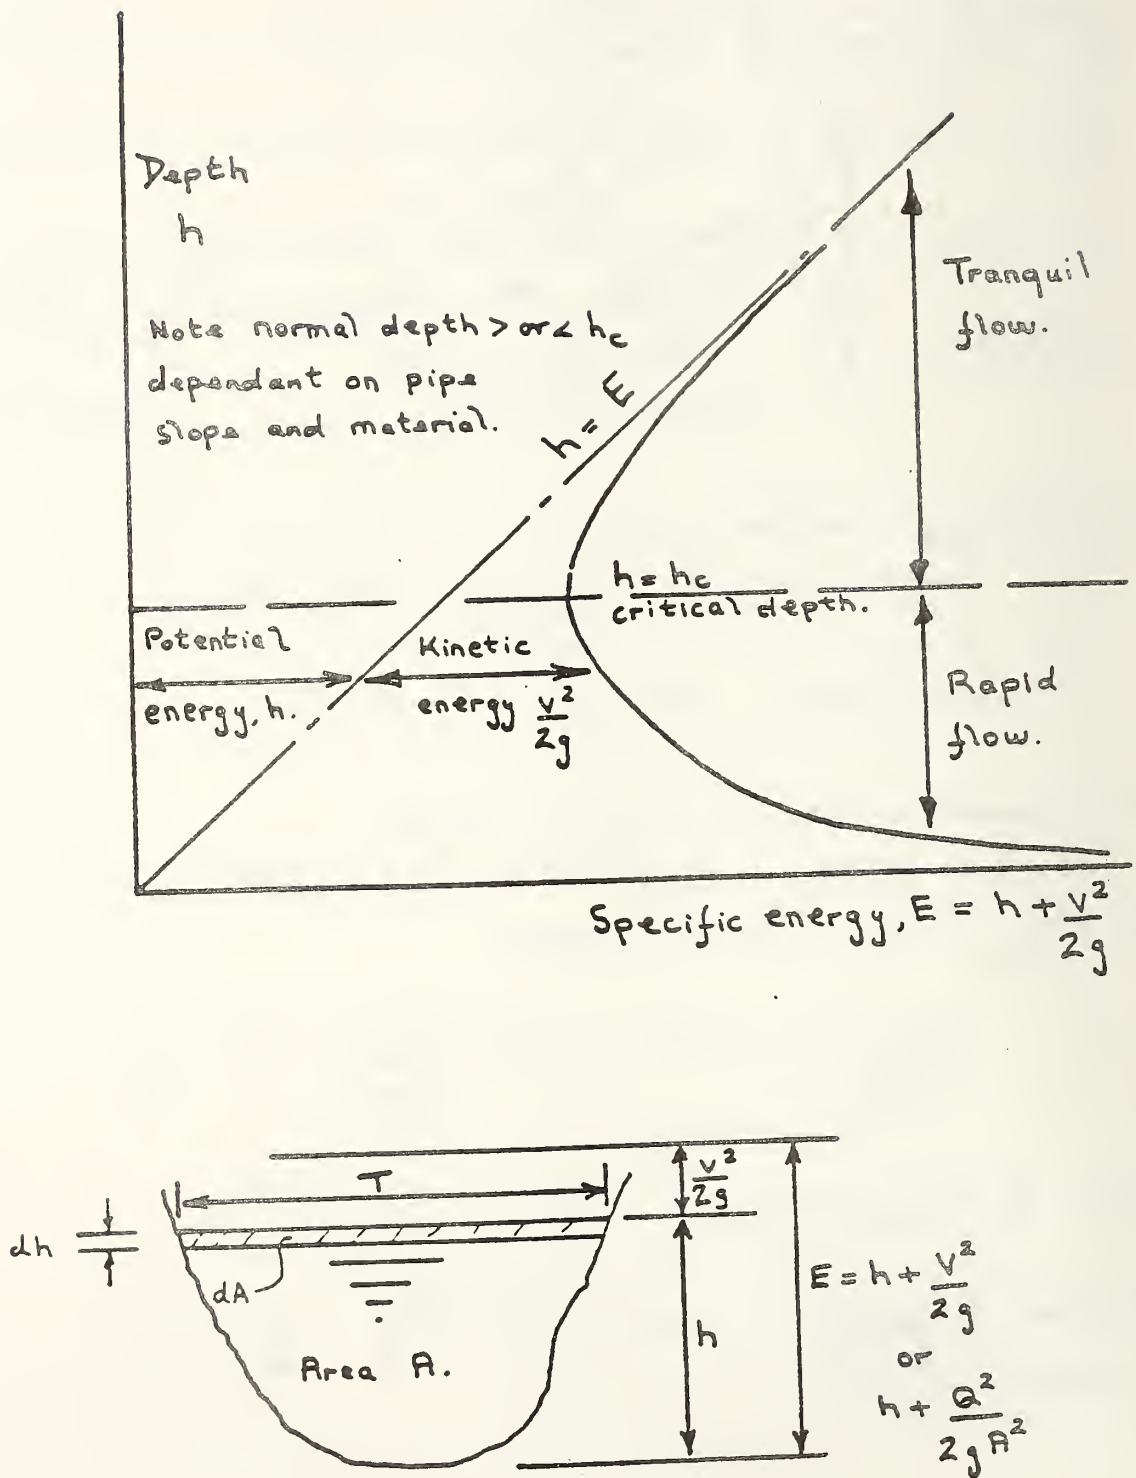 Depth
h
Note normal depth > or < hc
dependant on pipe
slope and material.
h = E
Tranquil
flow.
h = hc
critical depth.
Potential
energy, h.
Kinetic
energy v²/2g
Rapid
flow.
Specific energy, E = h + v²/2g
T
v²/2g
dh
dA
Area A.
h
E = h + v²/2g
or
h + Q²/2gA²